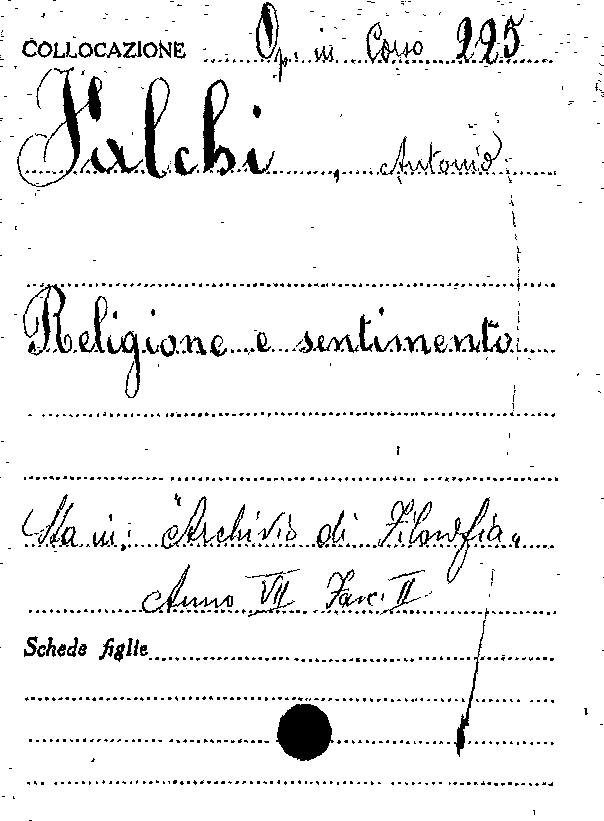 COLLOCAZIONE Op. in Corso 225
Falchi, Antonio
Religione e sentimento
Sta in: "Archivio di Filosofia"
Anno VII Fasc. II
Schede figlie